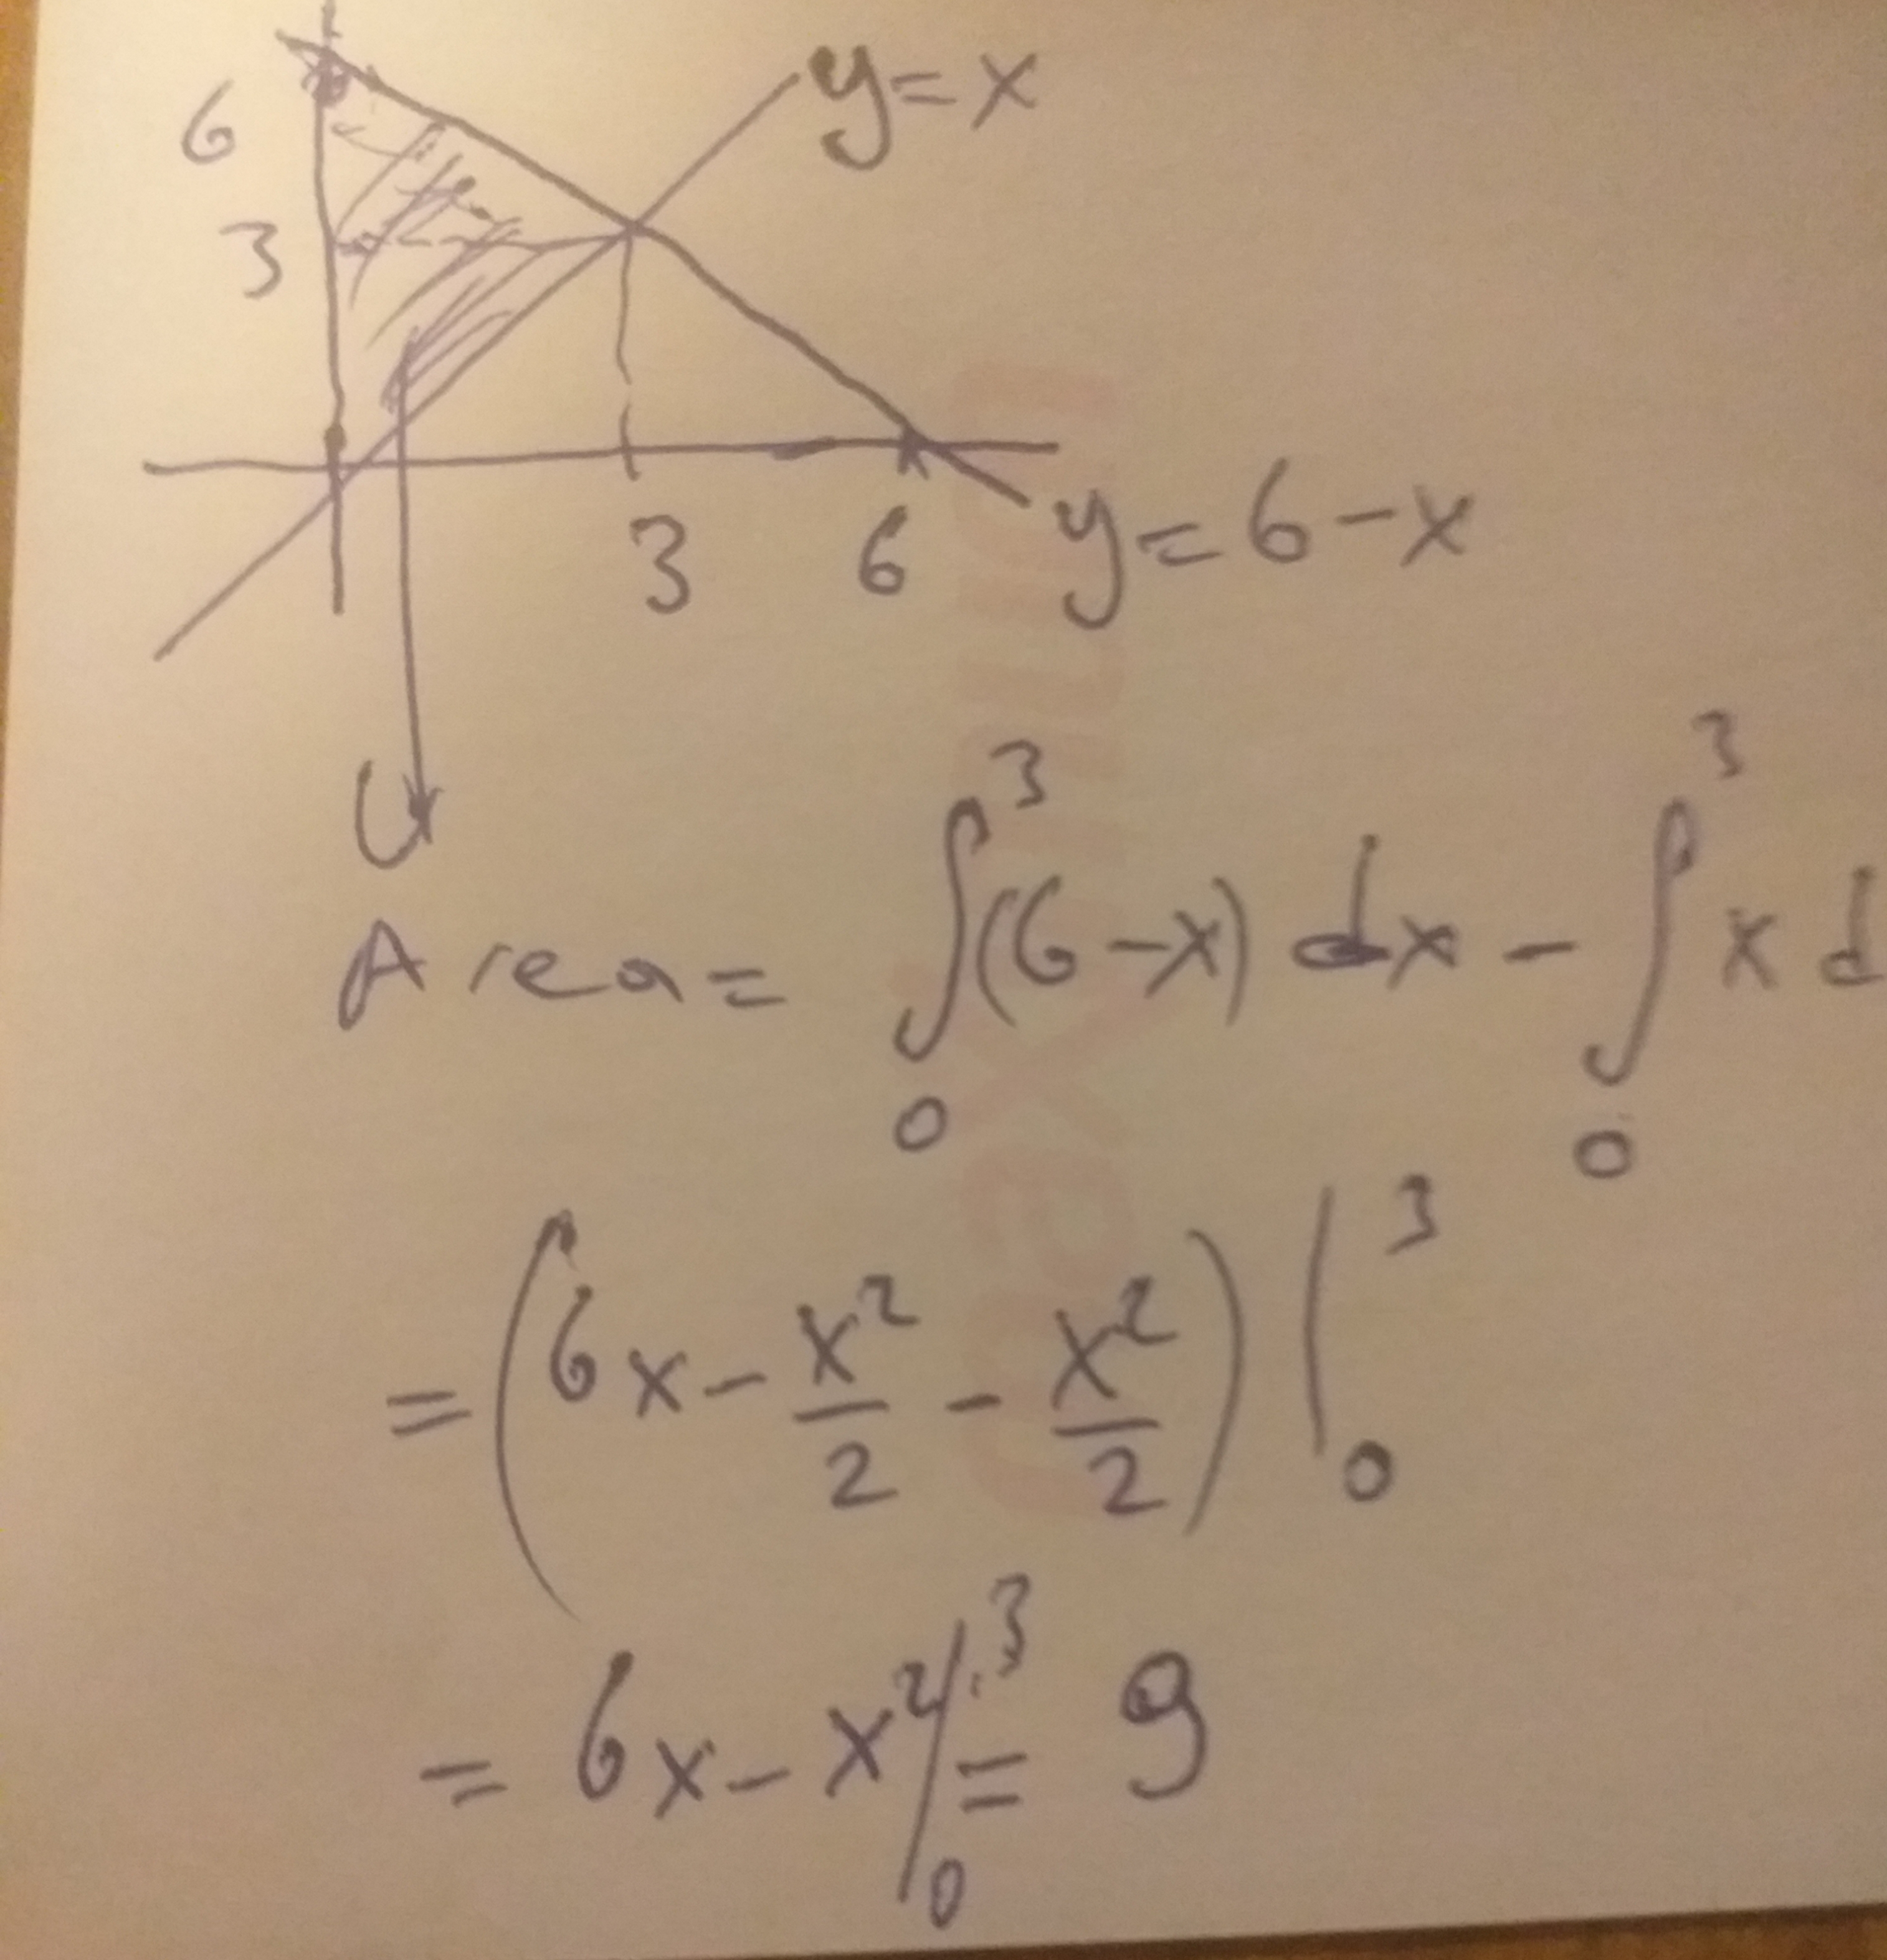 y = x
6
3
3 6 y = 6 - x
Area = ∫₀³ (6-x) dx - ∫₀³ x d
= (6x - x²/2 - x²/2) |₀³
= 6x - x² |₀³ = 9